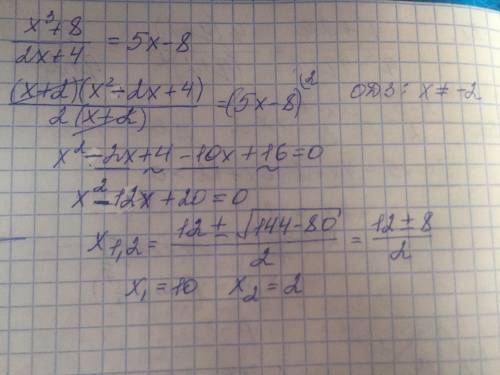 x³+8 / 2x+4 = 5x-8
(x+2)(x²-2x+4) / 2(x+2) = (5x-8) (2 ОДЗ: x≠-2
x²-2x+4-10x+16=0
x²-12x+20=0
x₁,₂ = 12±√144-80 / 2 = 12±8 / 2
x₁=10 x₂=2